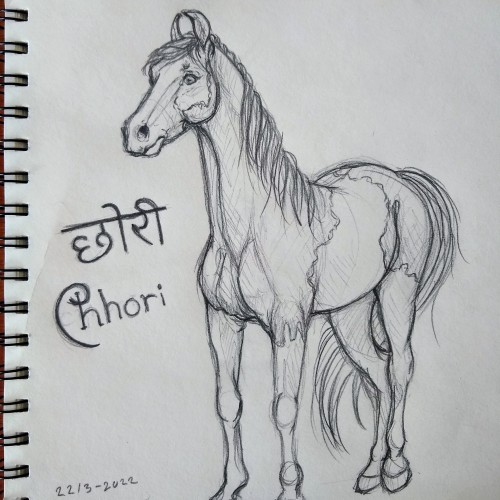 छोरी
Chhori
22/3-2022